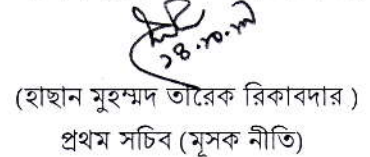 (হাছান মুহম্মদ তারেক রিকাবদার )
প্রথম সচিব (মূসক নীতি)